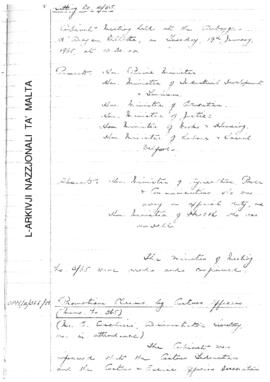 Cabinet Meeting held at the Auberge
D'Aragon, Valletta, on Tuesday, 19th January,
1965, at 10.30 am
Present: Hon. Prime Minister
Hon. Minister of Industrial Development
& Tourism
Hon. Minister of Education
Hon. Minister of Justice
Hon. Minister of Works & Housing
Hon. Minister of Labour & Social
Welfare.
Absent: Hon. Minister of Agriculture, Power
& Communications who was
away on official duty, and
Hon. Minister of Health who was
unwell
The minutes of Meeting
No. 2/65 were read and confirmed
L-ARKIVJI NAZZJONALI TA' MALTA
Promotion Claims by Customs Officers
was in attendance)
The Cabinet was
informed that the Customs
and the Customs & Excise Officers Association